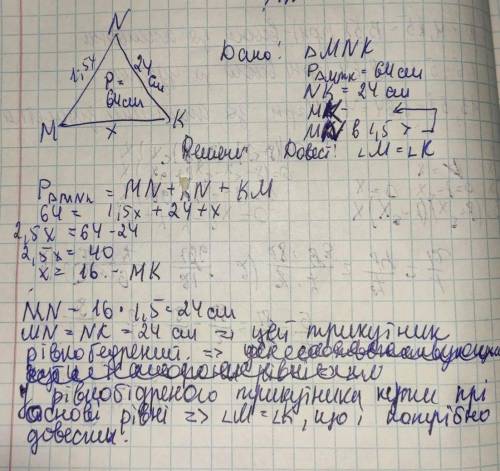 N
1,5x
24 см
P=
64см
M
x
K
Дано: △MNK
P△MNK = 64 см
NK = 24 см
MK -
MN в 1,5 >
Довести: ∠M = ∠K
P△MNK = MN + KN + KM
64 = 1,5x + 24 + x
2,5x = 64 - 24
2,5x = 40
x = 16 - MK
MN - 16 · 1,5 = 24 см
MN = NK = 24 см => цей трикутник
рівнобедрений. =>
У рівнобідреного трикутника кути прі
основі рівні => ∠M = ∠K, що і потрібно
довести.